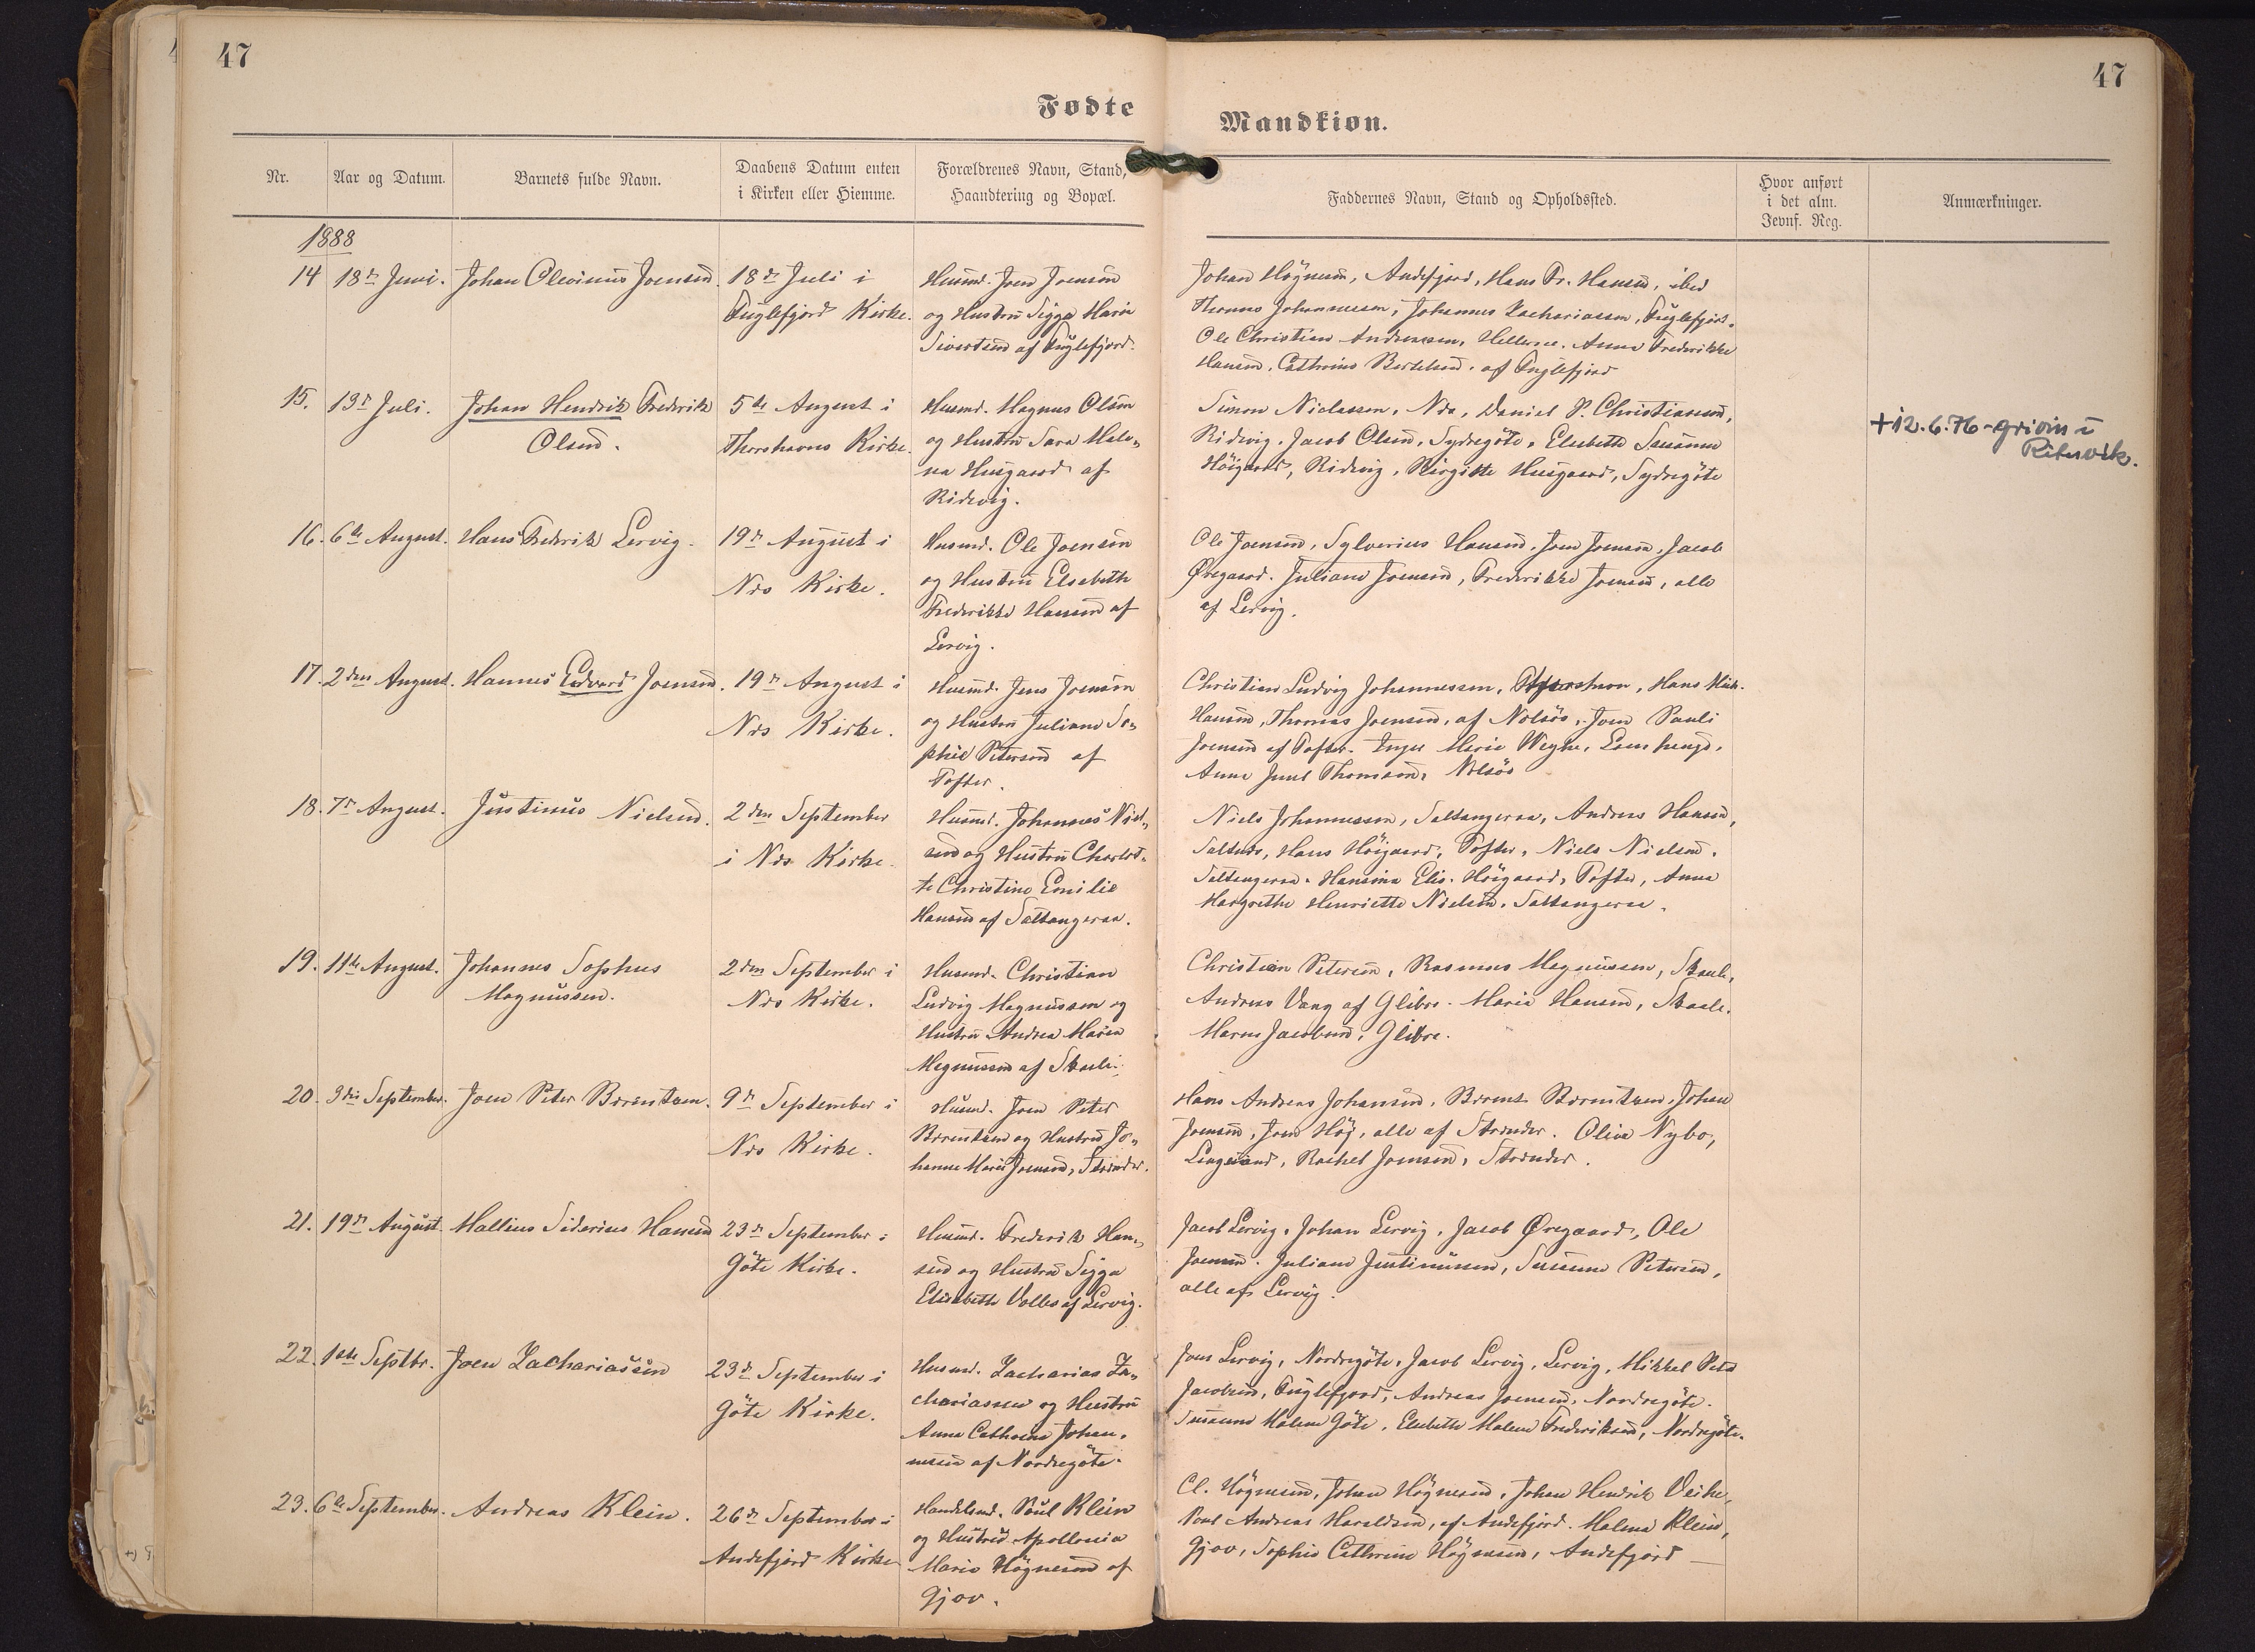 47
47
Fødte
Mandkiøn.
Nr.
Aar og Datum.
Barnets fulde Navn.
Daabens Datum enten
i Kirken eller Hiemme.
Forældrenes Navn, Stand,
Haandtering og Bopæl.
Faddernes Navn, Stand og Opholdssted.
Hvor anført
i det alm.
Jevnf. Reg.
Anmærkninger.
1888
14
18de Juni.
Johan Olevinus Joensen.
18de Juli i
Fuglefjord Kirke.
Husmd. Joen Joensen
og Hustru Sigga Maria
Sivertsen af Fuglefjord.
Johan Högnesen, Andefjord, Hans Fr. Hansen, ibid
Thomas Johannessen, Johannes Zachariassen, Fuglefjord.
Ole Christian Andreasen, Hellerne. Anna Frederikke
Hansen, Cathrine Bertelsen, af Fuglefjord
15.
13de Juli.
Johan Hendrik Frederik
Olsen.
5te August i
Thorshavns Kirke.
Husmd. Magnus Olsen
og Hustru Sara Male-
na Husgaard af
Ridevig.
Simon Niclassen, Næs, Daniel P. Christiansen,
Ridevig. Jacob Olsen, Sydregöte, Elsebeth Susanne
Höigaard, Ridevig, Birgitte Husgaard, Sydregöte
+12.6.76 - grivin í
Rituvík.
16.
6te August.
Hans Frederik Lervig.
19de August i
Nes Kirke.
Husmd. Ole Joensen
og Hustru Elsebeth
Frederikke Hansen af
Lervig.
Ole Joensen, Sylverius Hansen, Joen Joensen, Jacob
Øregaard. Juliane Joensen, Frederikke Joensen, alle
af Lervig.
17.
2den August.
Hannes Edvard Joensen.
19de August i
Nes Kirke.
Husmd. Jens Joensen
og Hustru Juliane So-
phie Petersen af
Tofter.
Christian Ludvig Johannessen, Hans Mich.
Hansen, Thomas Joensen, af Nolsös, Joen Pauli
Joensen af Tofter. Inger Marie Weyhe,
Anna Thomsen, Nolsös
18.
7de August.
Justinus Nielsen.
2den September
i Nes Kirke.
Husmd. Johannes Niel-
sen og Hustru Charlot-
te Christine Emilie
Hansen af Saltangeraa.
Niels Johannessen, Saltangeraa, Andreas Hansen,
Saltnes, Hans Höigaard, Tofter, Niels Nielsen,
Saltangeraa. Hansina Elis. Höigaard, Tofter, Anna
Margrethe Henriette Nielsen, Saltangeraa.
19.
11te August.
Johannes Sophus
Magnussen.
2den September i
Nes Kirke.
Husmd. Christian
Ludvig Magnussen og
Hustru Andrea Maria
Magnussen af Skaale.
Christian Petersen, Rasmus Magnussen, Skaale,
Andreas Vang af Glibre. Maria Hansen, Skaale.
Maren Jacobsen, Glibre.
20.
3die September.
Joen Peter Berentsen.
9de September i
Nes Kirke.
Husmd. Joen Peter
Berentsen og Hustru Jo-
hanne Marie Joensen, Strænder.
Hans Andreas Johansen, Berent Berentsen, Johan
Joensen, Joen Höj, alle af Strænder. Olivia Nybo,
Rachel Joensen, Strænder.
21.
19de August.
Mallius Siderius Hansen
23de September i
Göte Kirke.
Husmd. Frederik Han-
sen og Hustru Sigga
Elisabeth Volles af Lervig.
Jacob Lervig, Johan Lervig, Jacob Øregaard, Ole
Joensen. Juliane Justinussen, Susanne Petersen,
alle af Lervig.
22.
1ste Septbr.
Joen Zachariassen
23de September i
Göte Kirke.
Husmd. Zacharias Za-
chariassen og Hustru
Anna Cathrine Johan-
nesen af Nordregöte.
Joen Lervig, Nordregöte, Jacob Lervig, Lervig, Mikkel Peter
Jacobsen, Fuglefjord, Andreas Joensen, Nordregöte.
Susanne Malene Göte, Elsebeth Malene Frederiksen, Nordregöte.
23.
6te September.
Andreas Klein.
26de September i
Andefjord Kirke
Handelsmd. Poul Klein
og Hustru Apollonia
Marie Högnesen af
Gjov.
Cl. Högnesen, Johan Högnesen, Johan Hendrik Veihe,
Poul Andreas Haraldsen, af Andefjord. Malena Klein,
Gjov, Sophie Cathrine Högnesen, Andefjord